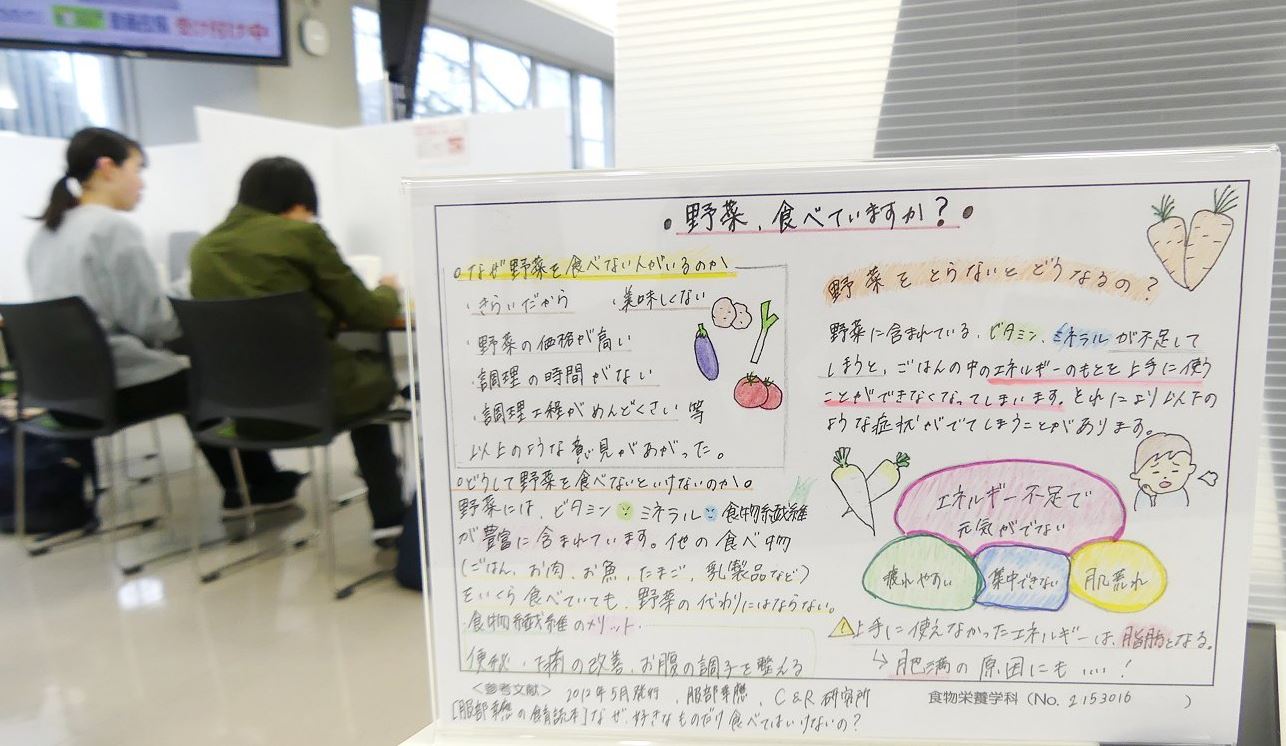 受け付け中
・野菜、食べていますか?・
○なぜ野菜を食べない人がいるのか
・きらいだから ・美味しくない
・野菜の価格が高い
・調理の時間がない
・調理工程がめんどくさい 等
以上のような意見があがった。
○どうして野菜を食べないといけないのか。
野菜には、ビタミン ミネラル 食物繊維
が豊富に含まれています。他の食べ物
(ごはん、お肉、お魚、たまご、乳製品など)
をいくら食べていても、野菜の代わりにはならない。
・食物繊維のメリット
便秘・痔の改善、お腹の調子を整える
野菜をとらないとどうなるの?
野菜に含まれている、ビタミン、ミネラルが不足して
しまうと、ごはんの中のエネルギーのもとを上手に使う
ことができなくなってしまいます。それにより以下の
ような症状がでてしまうことがあります。
エネルギー不足で
元気がでない
疲れやすい
集中できない
肌荒れ
上手に使えなかったエネルギーは、脂肪となる。
↳肥満の原因にも….!
<参考文献> 2012年5月発行 、服部幸應 、C&R研究所
[服部幸應の食育読本]なぜ、好きなものだけ食べてはいけないの?
食物栄養学科(No. 2153016 )